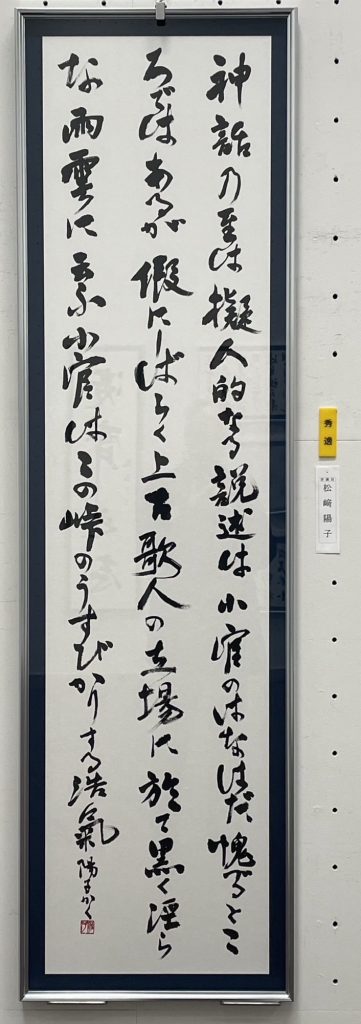 神話乃至は擬人的なる説述は小官のはなはだ愧づるとこ
ろではあるが假にしばらく上古歌人の立場に於て黒く淫ら
な雨雲に云ふ小官はこの峠のうすびかりする浩氣 陽子かく
秀逸
松﨑陽子